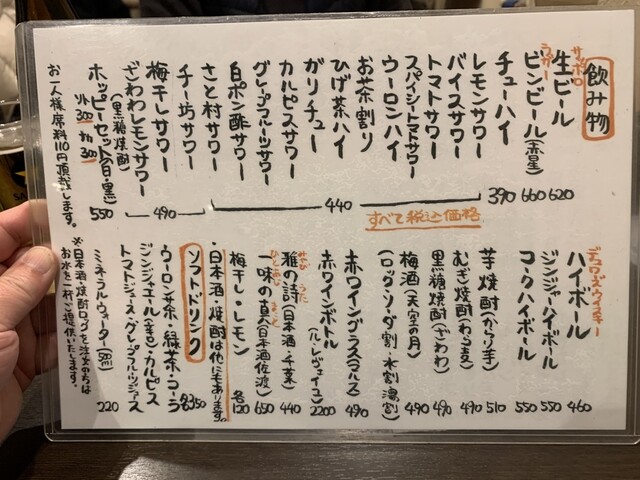 飲み物
サッポロ
生ビール 620
ラガー
ビンビール(赤星) 660
チューハイ 390
レモンサワー
バイスサワー
トマトサワー
スパイシートマトサワー
ウーロンハイ
お茶割り
ひげ茶ハイ
ガリチュー
カルピスサワー
グレープフルーツサワー
白ポン酢サワー
さと村サワー
440
チー坊サワー
梅干サワー
ざわわレモンサワー
(黒糖焼酎)
490
ホッピーセット(白・黒) 550
ソト300 ナカ300
お一人様席料110円頂戴します。
すべて税込価格
デュワーズウイスキー
ハイボール 460
ジンジャーハイボール 550
コークハイボール 550
芋焼酎(からり芋) 510
むぎ焼酎(わる麦) 490
黒糖焼酎(ざわわ) 490
梅酒(天空の月) 490
(ロック・ソーダ割・水割・湯割)
赤ワイングラス(マルス) 490
赤ワインボトル 2200
(ル・レヴェイユ)
雅の詩(日本酒・千葉) 440
一味の真(日本酒佐渡) 650
梅干し・レモン 各120
・日本酒・焼酎は他にもあります。
ソフトドリンク
ウーロン茶・緑茶・コーラ 各350
ジンジャエール(辛口)・カルピス
トマトジュース・グレープフルーツジュース
ミネラルウォーター 220
※日本酒・焼酎ロックを注文の方は
お水を一杯ご提供いたします。